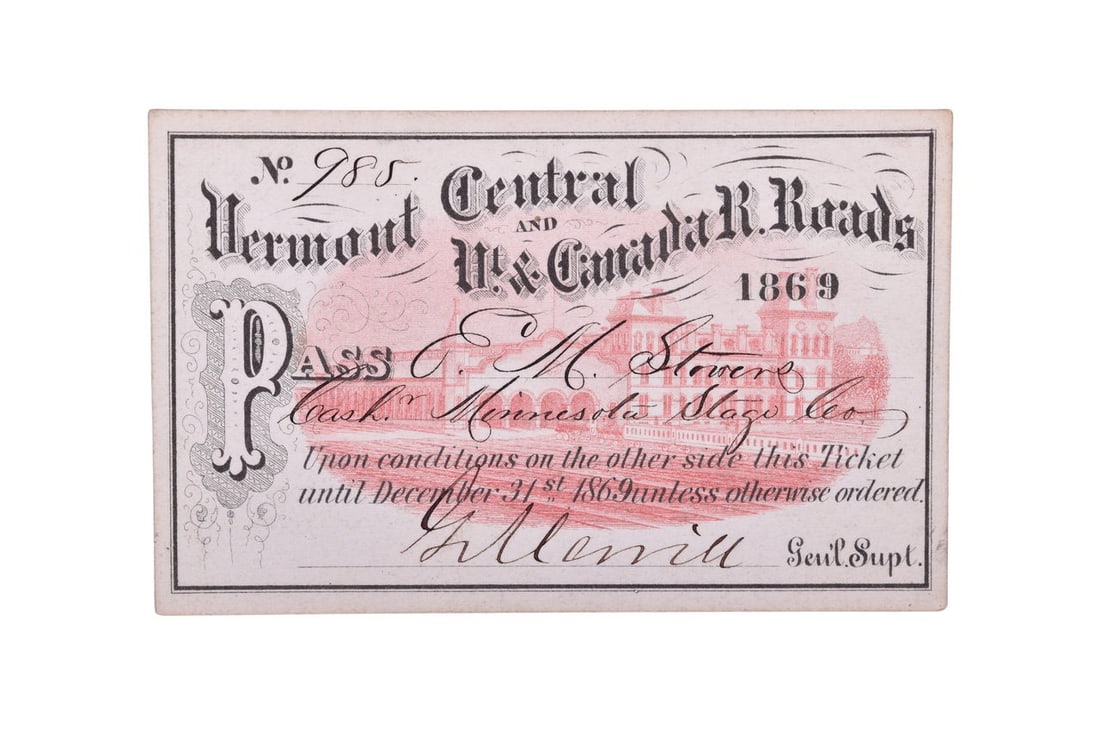 No. 985.
Vermont Central AND Vt. & Canada R. Roads
1869
PASS E. M. Stowers
Cashr. Minnesota Stage Co.
Upon conditions on the other side this Ticket
until December 31st 1869 unless otherwise ordered.
G Merrill Gen'l. Supt.